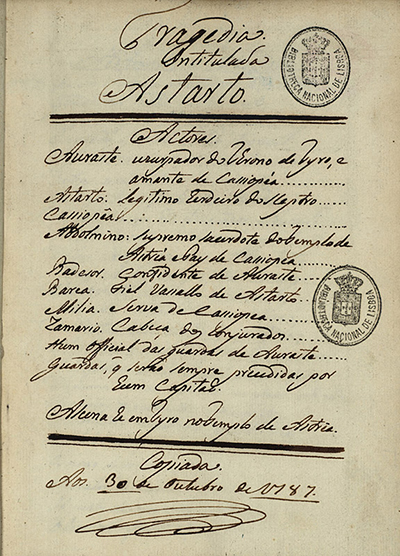 Tragedia.
Intitulada
Astarto.
Actores.
Auraste. uzurpador do Throno de Tyro, e
amante de Cassiopéa
Astarto. Legitimo Erdeiro do Septro
Cassiopéa
Abdolmino: Supremo sacerdote do templo de
Astréa Pay de Cassiopéa
Badesor. Confidente de Auraste
Barea. Fiel Vasallo de Astarto
Milia. Serva de Cassiopea
Zamario. Cabeca dos conjurados
Hum official das guardas de Auraste
Guardas, q̃ serão sempre precedidas por
Eum Capitaõ.
A scena E em tyro no templo de Astréa.
Copiada.
Aos 30 de Outubro de 1787.
BIBLIOTHECA NACIONAL DE LISBOA
BIBLIOTHECA NACIONAL DE LISBOA